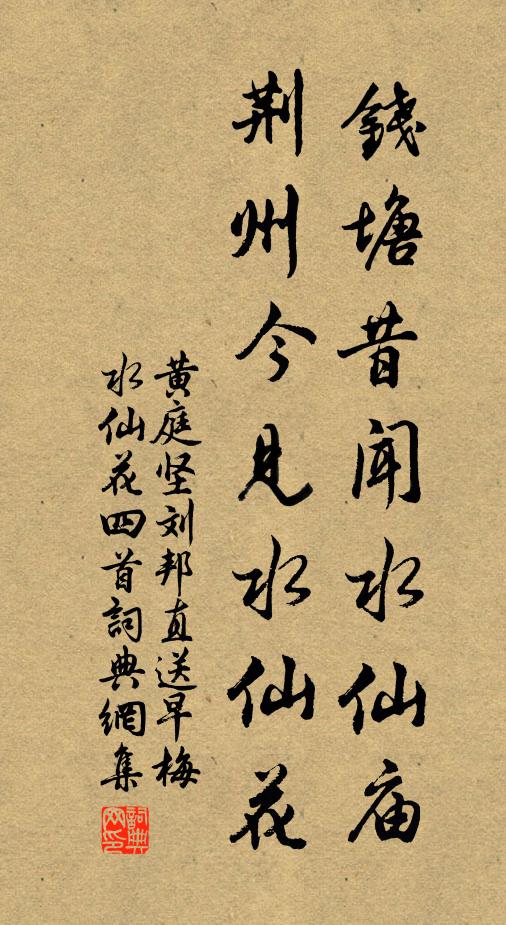 錢塘昔闻水仙庙
荆州今见水仙花
黄庭坚刘邦直送早梅
水仙花四首詞典網集
詞典网印